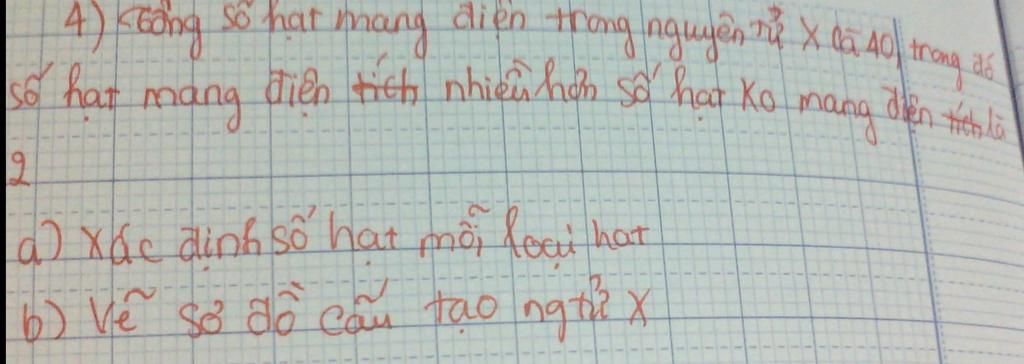 4) Tổng số hạt mang điện trong nguyên tử X là 40, trong đó
số hạt mang điện tích nhiều hơn số hạt ko mang điện tích là
2
a) Xác định số hạt mỗi loại hạt
b) Vẽ sơ đồ cấu tạo ngtử X